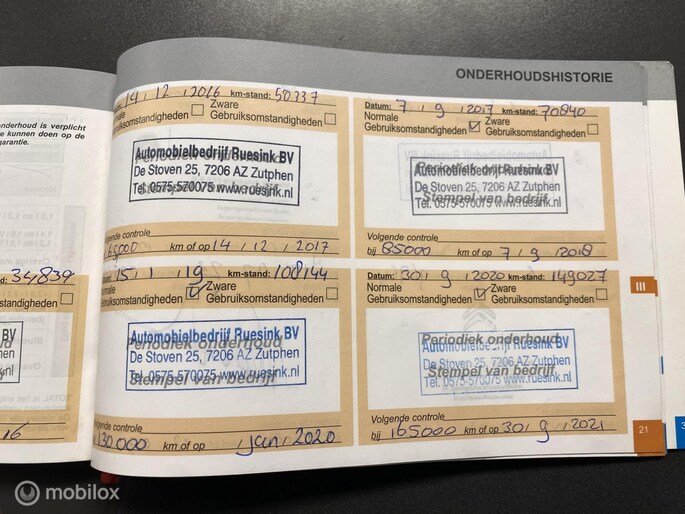 ONDERHOUDSHISTORIE
onderhoud is verplicht
kunnen doen op de
garantie.
34,839
standigheden
BV
n
nl
16
14, 12, 2016 km-stand: 50337
Normale Zware
Gebruiksomstandigheden Gebruiksomstandigheden
Periodiek onderhoud
Automobielbedrijf Ruesink BV
De Stoven 25, 7206 AZ Zutphen
Stempel van bedrijf
Tel. 0575-570075 www.ruesink.nl
Volgende controle
km of op 14, 12, 2017
Datum: 7, 9, 2017 km-stand: 70840
Normale Zware
Gebruiksomstandigheden Gebruiksomstandigheden
Periodiek onderhoud
Automobielbedrijf Ruesink BV
De Stoven 25, 7206 AZ Zutphen
Stempel van bedrijf
Tel. 0575-570075 www.ruesink.nl
Volgende controle
bij 85000 km of op 7, 9, 2018
15, 1, 19 km-stand: 108144
Normale Zware
Gebruiksomstandigheden Gebruiksomstandigheden
Automobielbedrijf Ruesink BV
Periodiek onderhoud
De Stoven 25, 7206 AZ Zutphen
Stempel van bedrijf
Tel. 0575-570075 www.ruesink.nl
Volgende controle
130.000 km of op , jan, 2020
Datum: 30, 9, 2020 km-stand: 149027
Normale Zware
Gebruiksomstandigheden Gebruiksomstandigheden
Periodiek onderhoud
Automobielbedrijf Ruesink BV
De Stoven 25, 7206 AZ Zutphen
Stempel van bedrijf
Tel. 0575-570075 www.ruesink.nl
Volgende controle
bij 165000 km of op 30, 9, 2021
III
21
mobilox